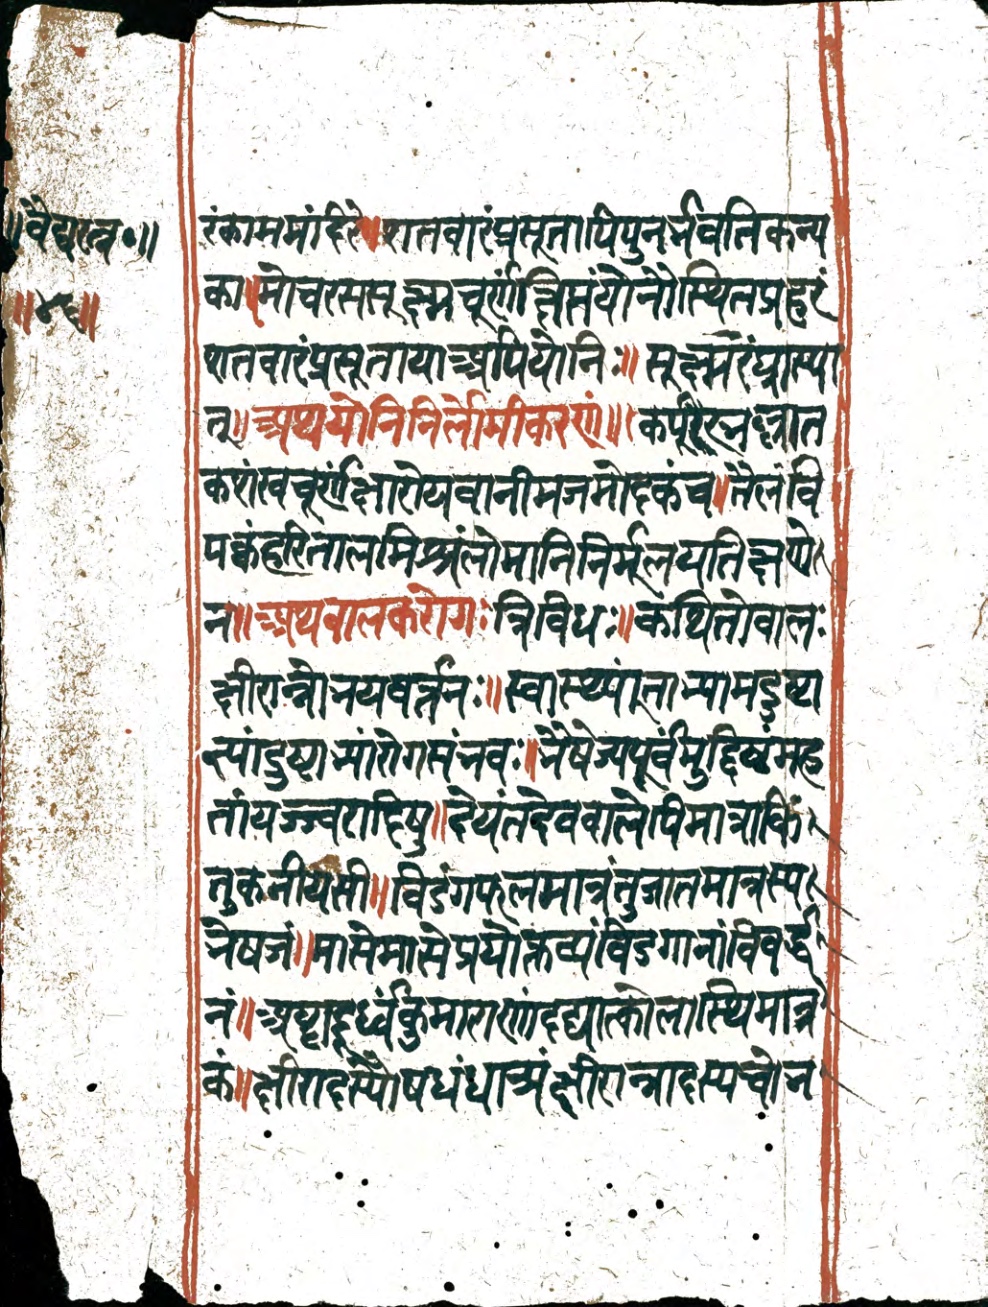 ॥वैद्यरत्न॰॥
॥४६॥
रंकाममंदिरे॥शतवारंप्रसूतापिपुनर्भवतिकन्य
का॥मोचरससूक्ष्मचूर्णंक्षिप्तंयोनौस्थितप्रहरं
शतवारंप्रसूतायाअपियोनिः॥सूक्ष्मरंध्रास्या
त्॥अथयोनिनिर्लोमीकरणं॥कर्पूरभल्लात
कशंखचूर्णंक्षारोयवानीमजमोदकंच॥तैलंवि
पक्वंहरितालमिश्रंलोमानिनिर्मूलयतिक्षणे
न॥अथबालकरोगः त्रिविधः॥कथितोबालः
क्षीरान्नोभयवर्त्तनः॥स्वास्थ्यंताभ्यामदुष्टा
भ्यांदुष्टाभ्यांरोगसंभवः॥भैषज्यंपूर्वमुद्दिष्टंमह
तांयज्ज्वरादिषु॥देयंतदेवबालेपिमात्राकिं
तुकनीयसी॥विडंगफलमात्रंतुजातमात्रस्य
भेषजं॥मासेमासेप्रयोक्तव्यंविडगानांविवर्द्ध
नं॥अष्टादूर्ध्वंकुमाराणांदद्यात्कोलास्थिमात्र
कं॥क्षीरादस्यौषधंधात्र्यंक्षीरान्नादस्यचोभ